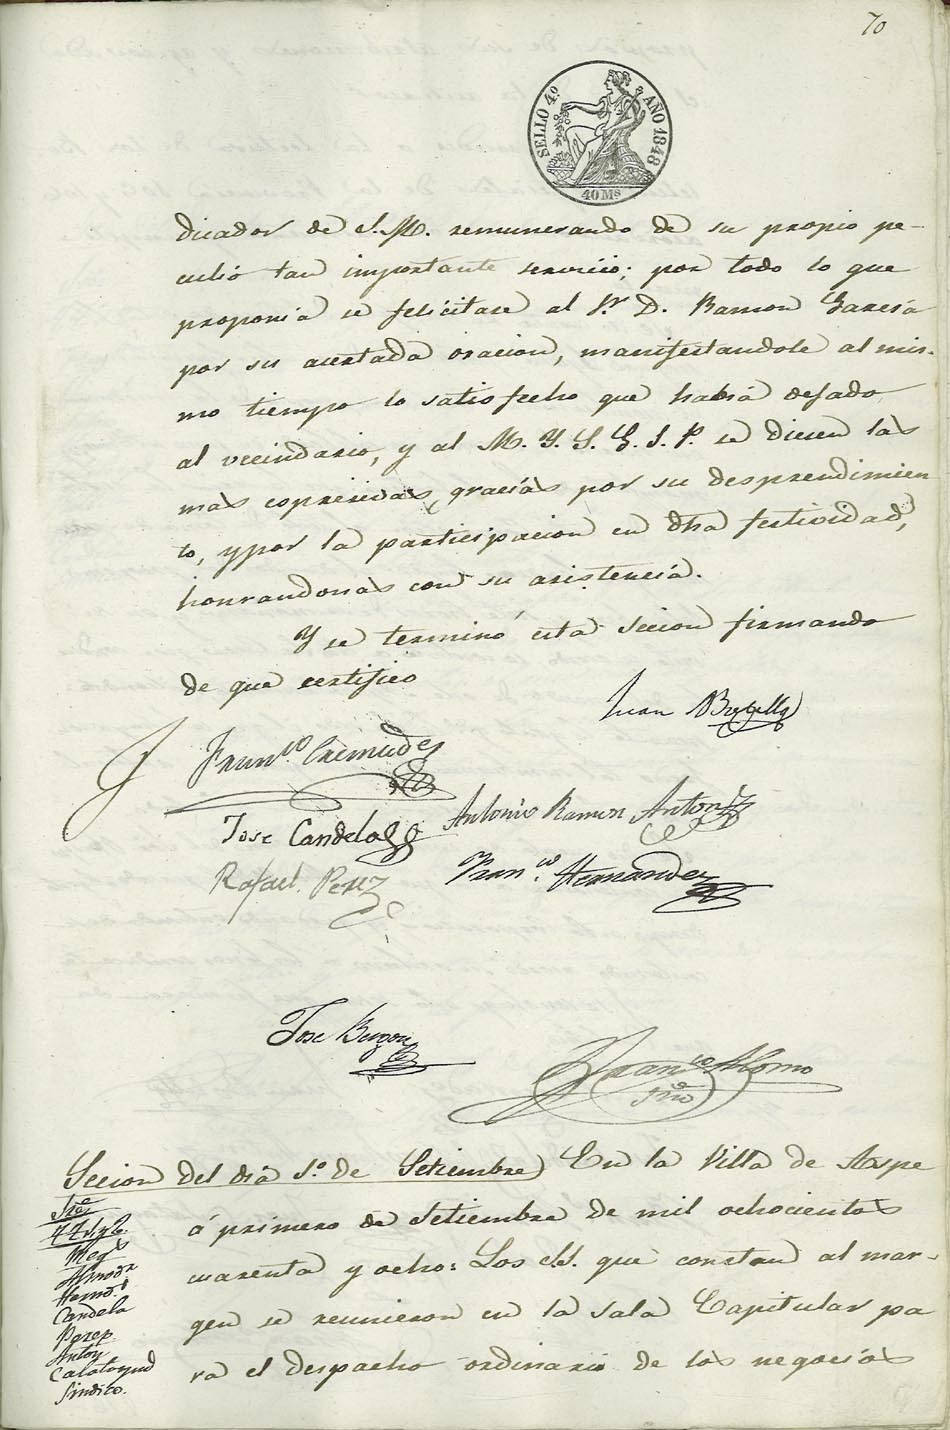 70
SELLO 4º AÑO 1848
40 Ms
dicador de S.M. remunerando de su propio pe-
culio tan importante servicio; por todo lo que
proponia se felicitase al Sr. D. Ramon Garcia
por su acertada oracion, manifestandole al mis-
mo tiempo lo satisfecho que habia dejado
al vecindario, y al M. Y. S. G. S. P. se diesen las
mas espresivas gracias por su desprendimien
to, y por la participacion en dha festividad,
honrandonos con su asistencia.
Y se terminó esta secion firmando
de que certifico
Juan Botella
Franco. Cremades
Jose Candela
Antonio Ramon Anton
Rafael Perez
Franco. Hernandez
Jose Burgon
Franco Alonso
Srio
Secion del dia 1º de Setiembre) En la Villa de Aspe
á primero de Setiembre de mil ochocientos
cuarenta y ocho: Los SS. que constan al mar-
gen se reunieron en la sala Capitular pa
ra el despacho ordinario de los negocios
Sres
Almodr
Hernd.
Candela
Perez
Anton
Calatayud
Sindico.